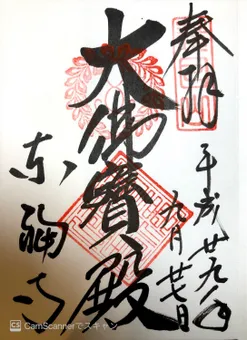 奉拝
平成廿九年
九月廿七日
大佛寶殿
东福寺
CS CamScannerでスキャン